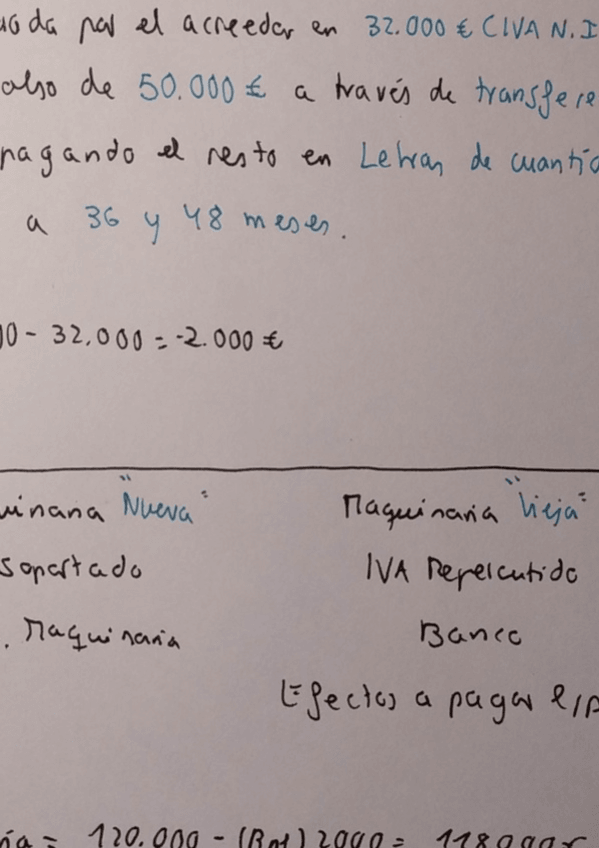 por el acreedor en 32.000 € (IVA N.I
de 50.000 € a través de transfere
pagando el resto en Letras de cuantía
a 36 y 48 meses.
00 - 32.000 = -2.000 €
uinaria "Nueva" Maquinaria "Vieja"
soportado IVA Repercutido
. Maquinaria Banco
Efectos a pagar l/p
ía = 120.000 - 2000 = 118.000€